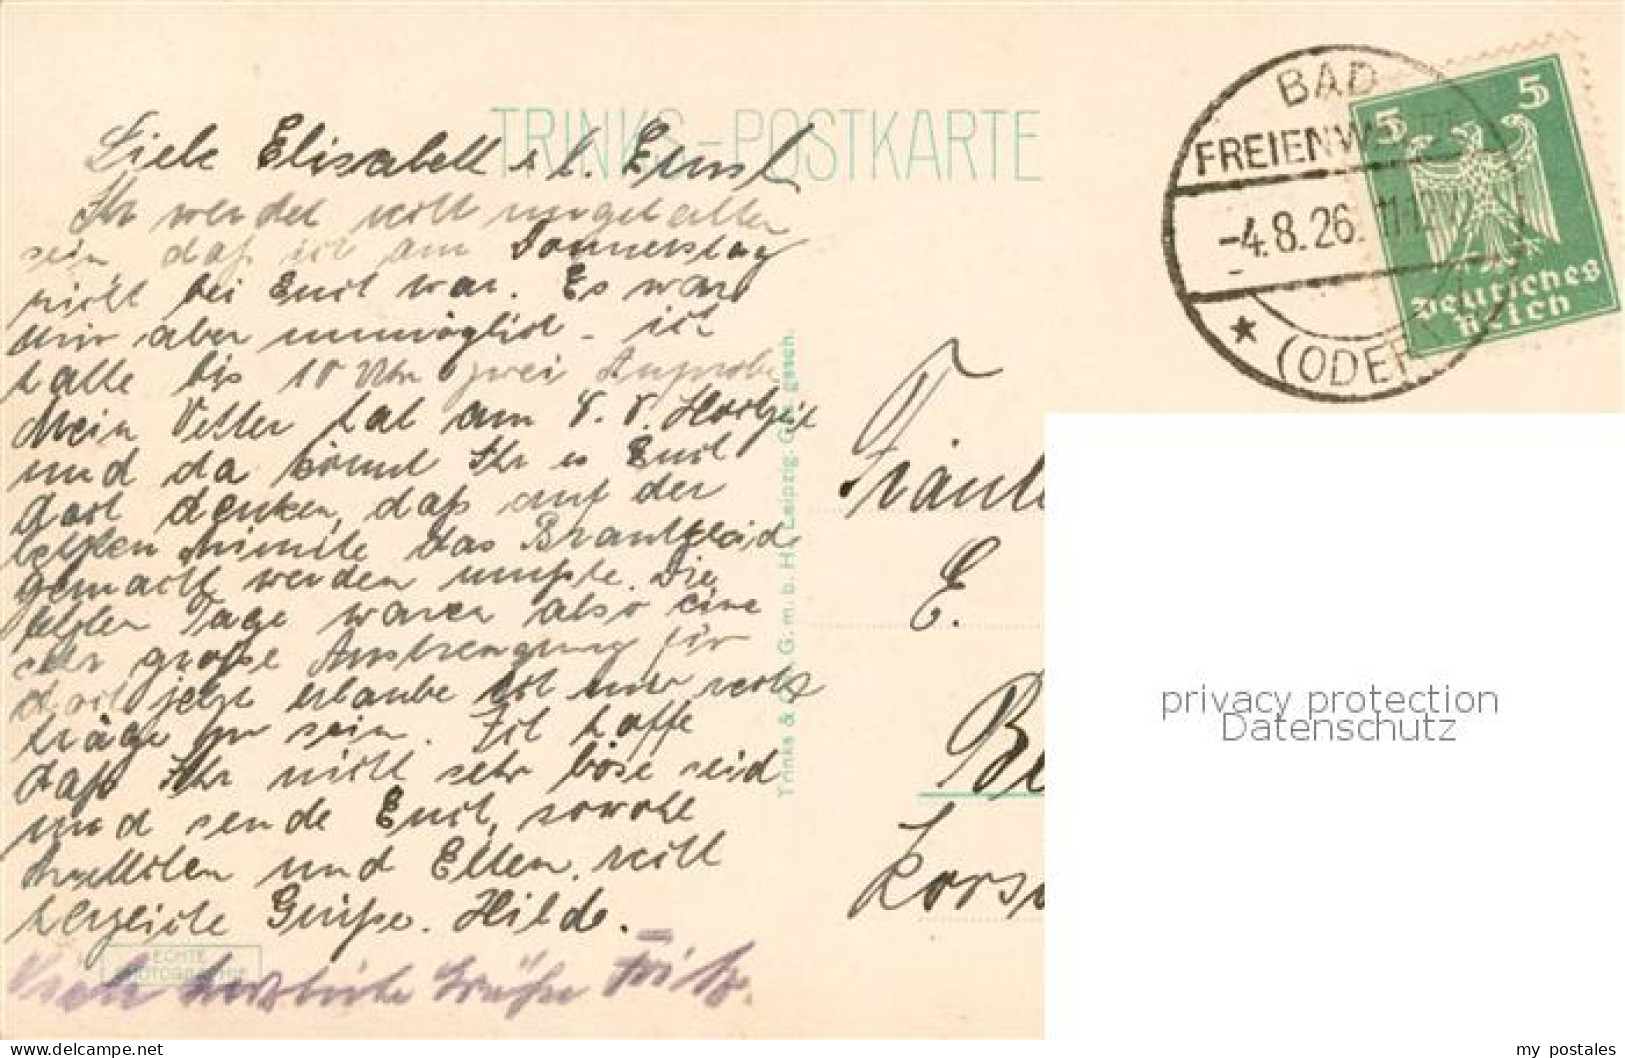 TRINKS-POSTKARTE
Liebe Elisabeth u. l. Ernst
Ihr werdet recht ungehalten
sein daß ich am Donnerstag
nicht bei Euch war. Es war
mir aber unmöglich - ich
hatte bis 10 Uhr zwei Anprobe
Mein Vetter hat am 8. 8. Hochzeit
und da könnt Ihr es Euch
doch denken, daß auf der
letzten Minute das Brautkleid
gemacht werden mußte. Die
letzten Tage waren also eine
sehr große Anstrengung für
doch jetzt erlaube ich mir recht
träge zu sein. Ich hoffe
daß Ihr nicht sehr böse seid
und sende Euch, sowohl
und Eltern recht
herzliche Grüße. Hilde.
Viele herzliche Grüße Fritz.
ECHTE
PHOTOGRAPHIE
Trinks & Co. G. m. b. H. Leipzig. Ges. gesch.
BAD
FREIENWALDE
-4.8.26. 11-12V.
* (ODER)
5 5
Deutsches
Reich
Fräule
E.
Be
privacy protection
Datenschutz
my postales